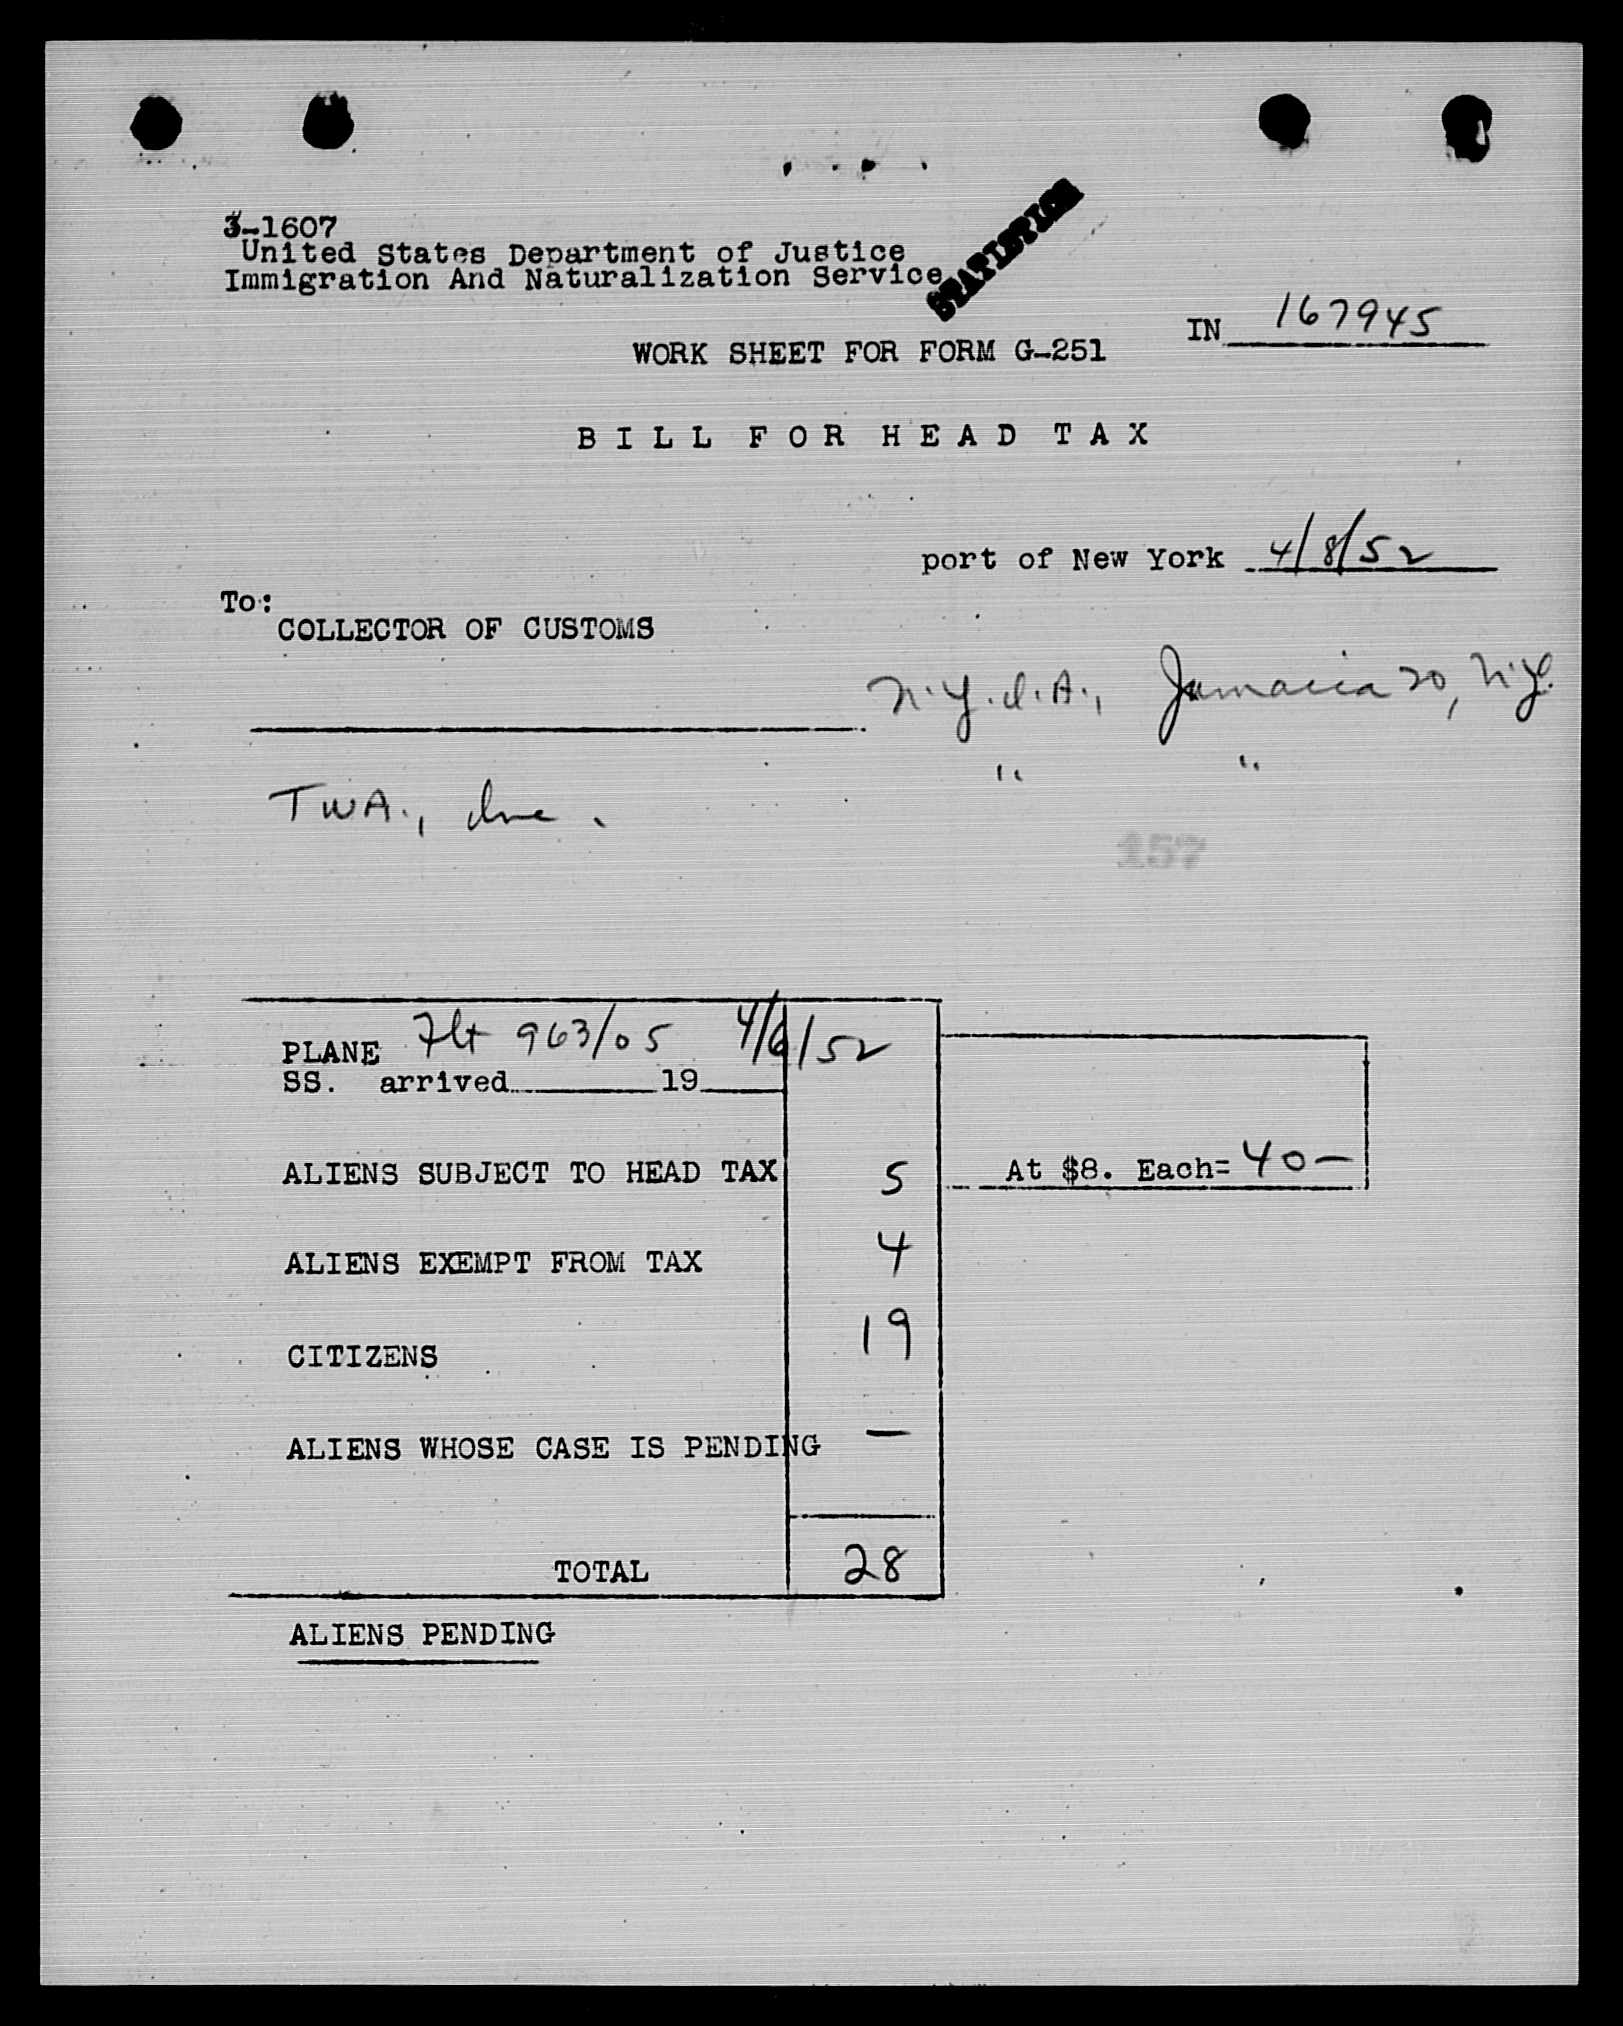 3-1607
United States Department of Justice
Immigration And Naturalization Service
STATISTICS
IN 167945
WORK SHEET FOR FORM G-251
BILL FOR HEAD TAX
port of New York 4/8/52
To:
COLLECTOR OF CUSTOMS
N.Y.I.A., Jamaica 20, N.Y.
" "
TWA., Inc.
157
PLANE Flt 963/05 4/6/52
SS. arrived 19
ALIENS SUBJECT TO HEAD TAX 5 At $8. Each= 40-
ALIENS EXEMPT FROM TAX 4
CITIZENS 19
ALIENS WHOSE CASE IS PENDING —
TOTAL 28
ALIENS PENDING